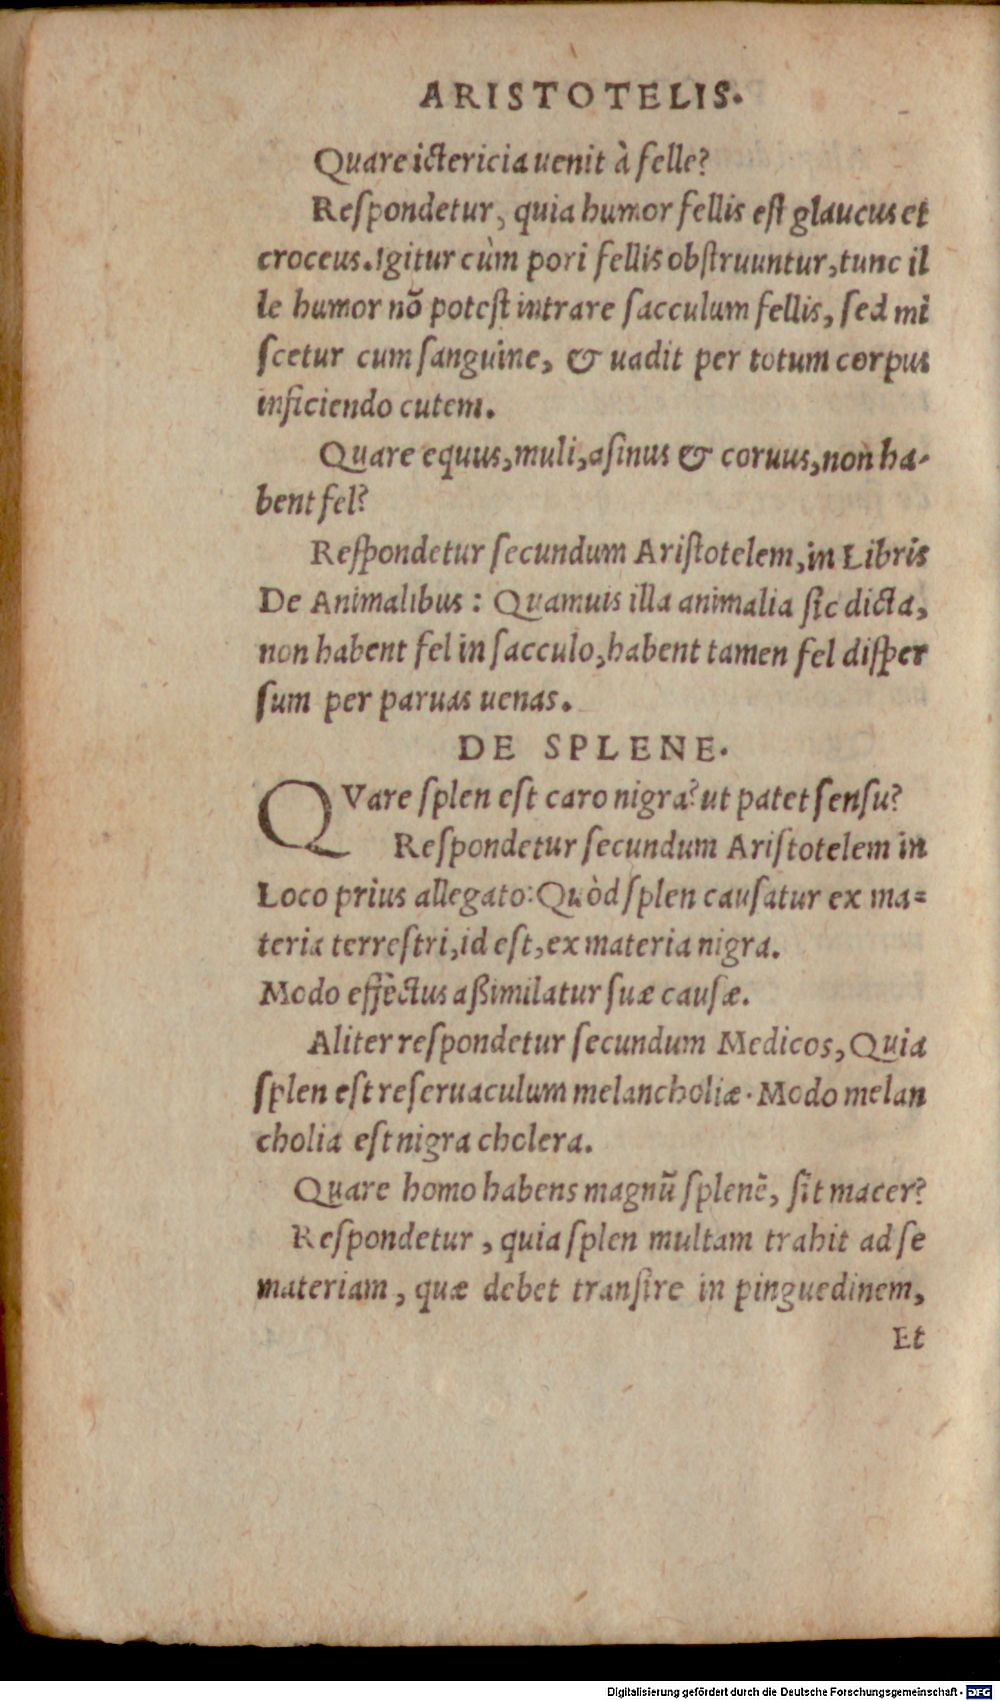 ARISTOTELIS.
Quare ictericia uenit à felle?
Reſpondetur, quia humor fellis eſt glaucus et
croceus. Igitur cùm pori fellis obſtruuntur, tunc il
le humor nõ poteſt intrare ſacculum fellis, ſed mi
ſcetur cum ſanguine, & uadit per totum corpus
inficiendo cutem.
Quare equus, muli, aſinus & coruus, non ha-
bent fel?
Reſpondetur ſecundum Ariſtotelem, in Libris
De Animalibus: Quamuis illa animalia ſic dicta,
non habent fel in ſacculo, habent tamen fel diſper
ſum per paruas uenas.
DE SPLENE.
QVare ſplen eſt caro nigra? ut patet ſenſu?
Reſpondetur ſecundum Ariſtotelem in
Loco prius allegato: Quòd ſplen cauſatur ex ma=
teria terreſtri, id eſt, ex materia nigra.
Modo effectus aßimilatur ſuæ cauſæ.
Aliter reſpondetur ſecundum Medicos, Quia
ſplen eſt reſeruaculum melancholiæ. Modo melan
cholia eſt nigra cholera.
Quare homo habens magnũ ſplenẽ, ſit macer?
Reſpondetur, quia ſplen multam trahit ad ſe
materiam, quæ debet tranſire in pinguedinem,
Et
Digitalisierung gefördert durch die Deutsche Forschungsgemeinschaft - DFG